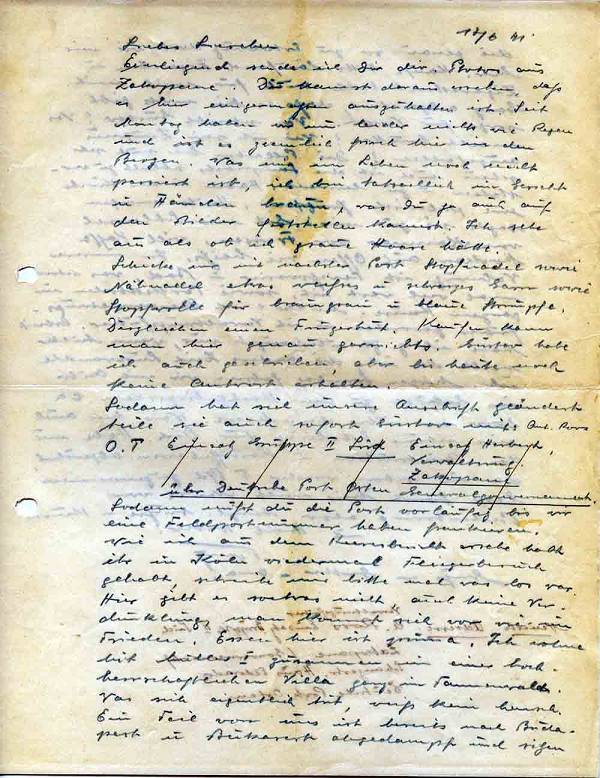 17/6 41
Liebes Lieschen
Einliegend sende ich Dir die Photos aus
Zakopane. Du kannst daraus ersehen, daß
es hier einigermaßen auszuhalten ist. Seit
Montag haben wir nun leider nichts wie Regen
und ist es ziemlich frisch hier in den
Bergen. Was mir im Leben noch nicht
passiert ist, ich bin tatsächlich im Gesicht
u Händen braun, was Du ja auch auf
den Bilder feststellen kannst. Ich sehe
aus als ob ich graue Haare hätte.
Schicke mir mit nächster Post Stopfnadel sowie
Nähnadel etwas weißes u schwarzes Garn sowie
Stopfwolle für braungrau u blaue Strümpfe.
Desgleichen einen Fingerhut. Kaufen kann
man hier genau garnichts. Gustav habe
ich auch geschrieben, aber bis heute noch
keine Antwort erhalten.
Sodann hat sich unsere Anschrift geändert
teile sie auch sofort Gustav mit:
O.T Einsatz Gruppe II Süd Einsatz
Verwaltung
Zakopane
über Deutsche Post Osten Generalgouvernement.
Sodann mußt du die Post vorläufig bis wir
eine Feldpostnummer haben frankieren.
Wie ich aus dem Heeresbericht ersehe habt
ihr in Köln wiedermal Fliegerbesuch
gehabt, schreibe mir bitte mal was los war.
Hier gibt es sowas nicht auch keine Ver-
dunklung, man kommt sich vor wie im
Frieden. Essen hier ist prima. Ich wohne
mit zusammen in einer hoch-
herrschaftlichen Villa ganz im Tannenwald.
Was sich eigentlich tut, weiß kein Mensch.
Ein Teil von uns ist bereits nach Buda-
pest u Bukarest abgedampft und